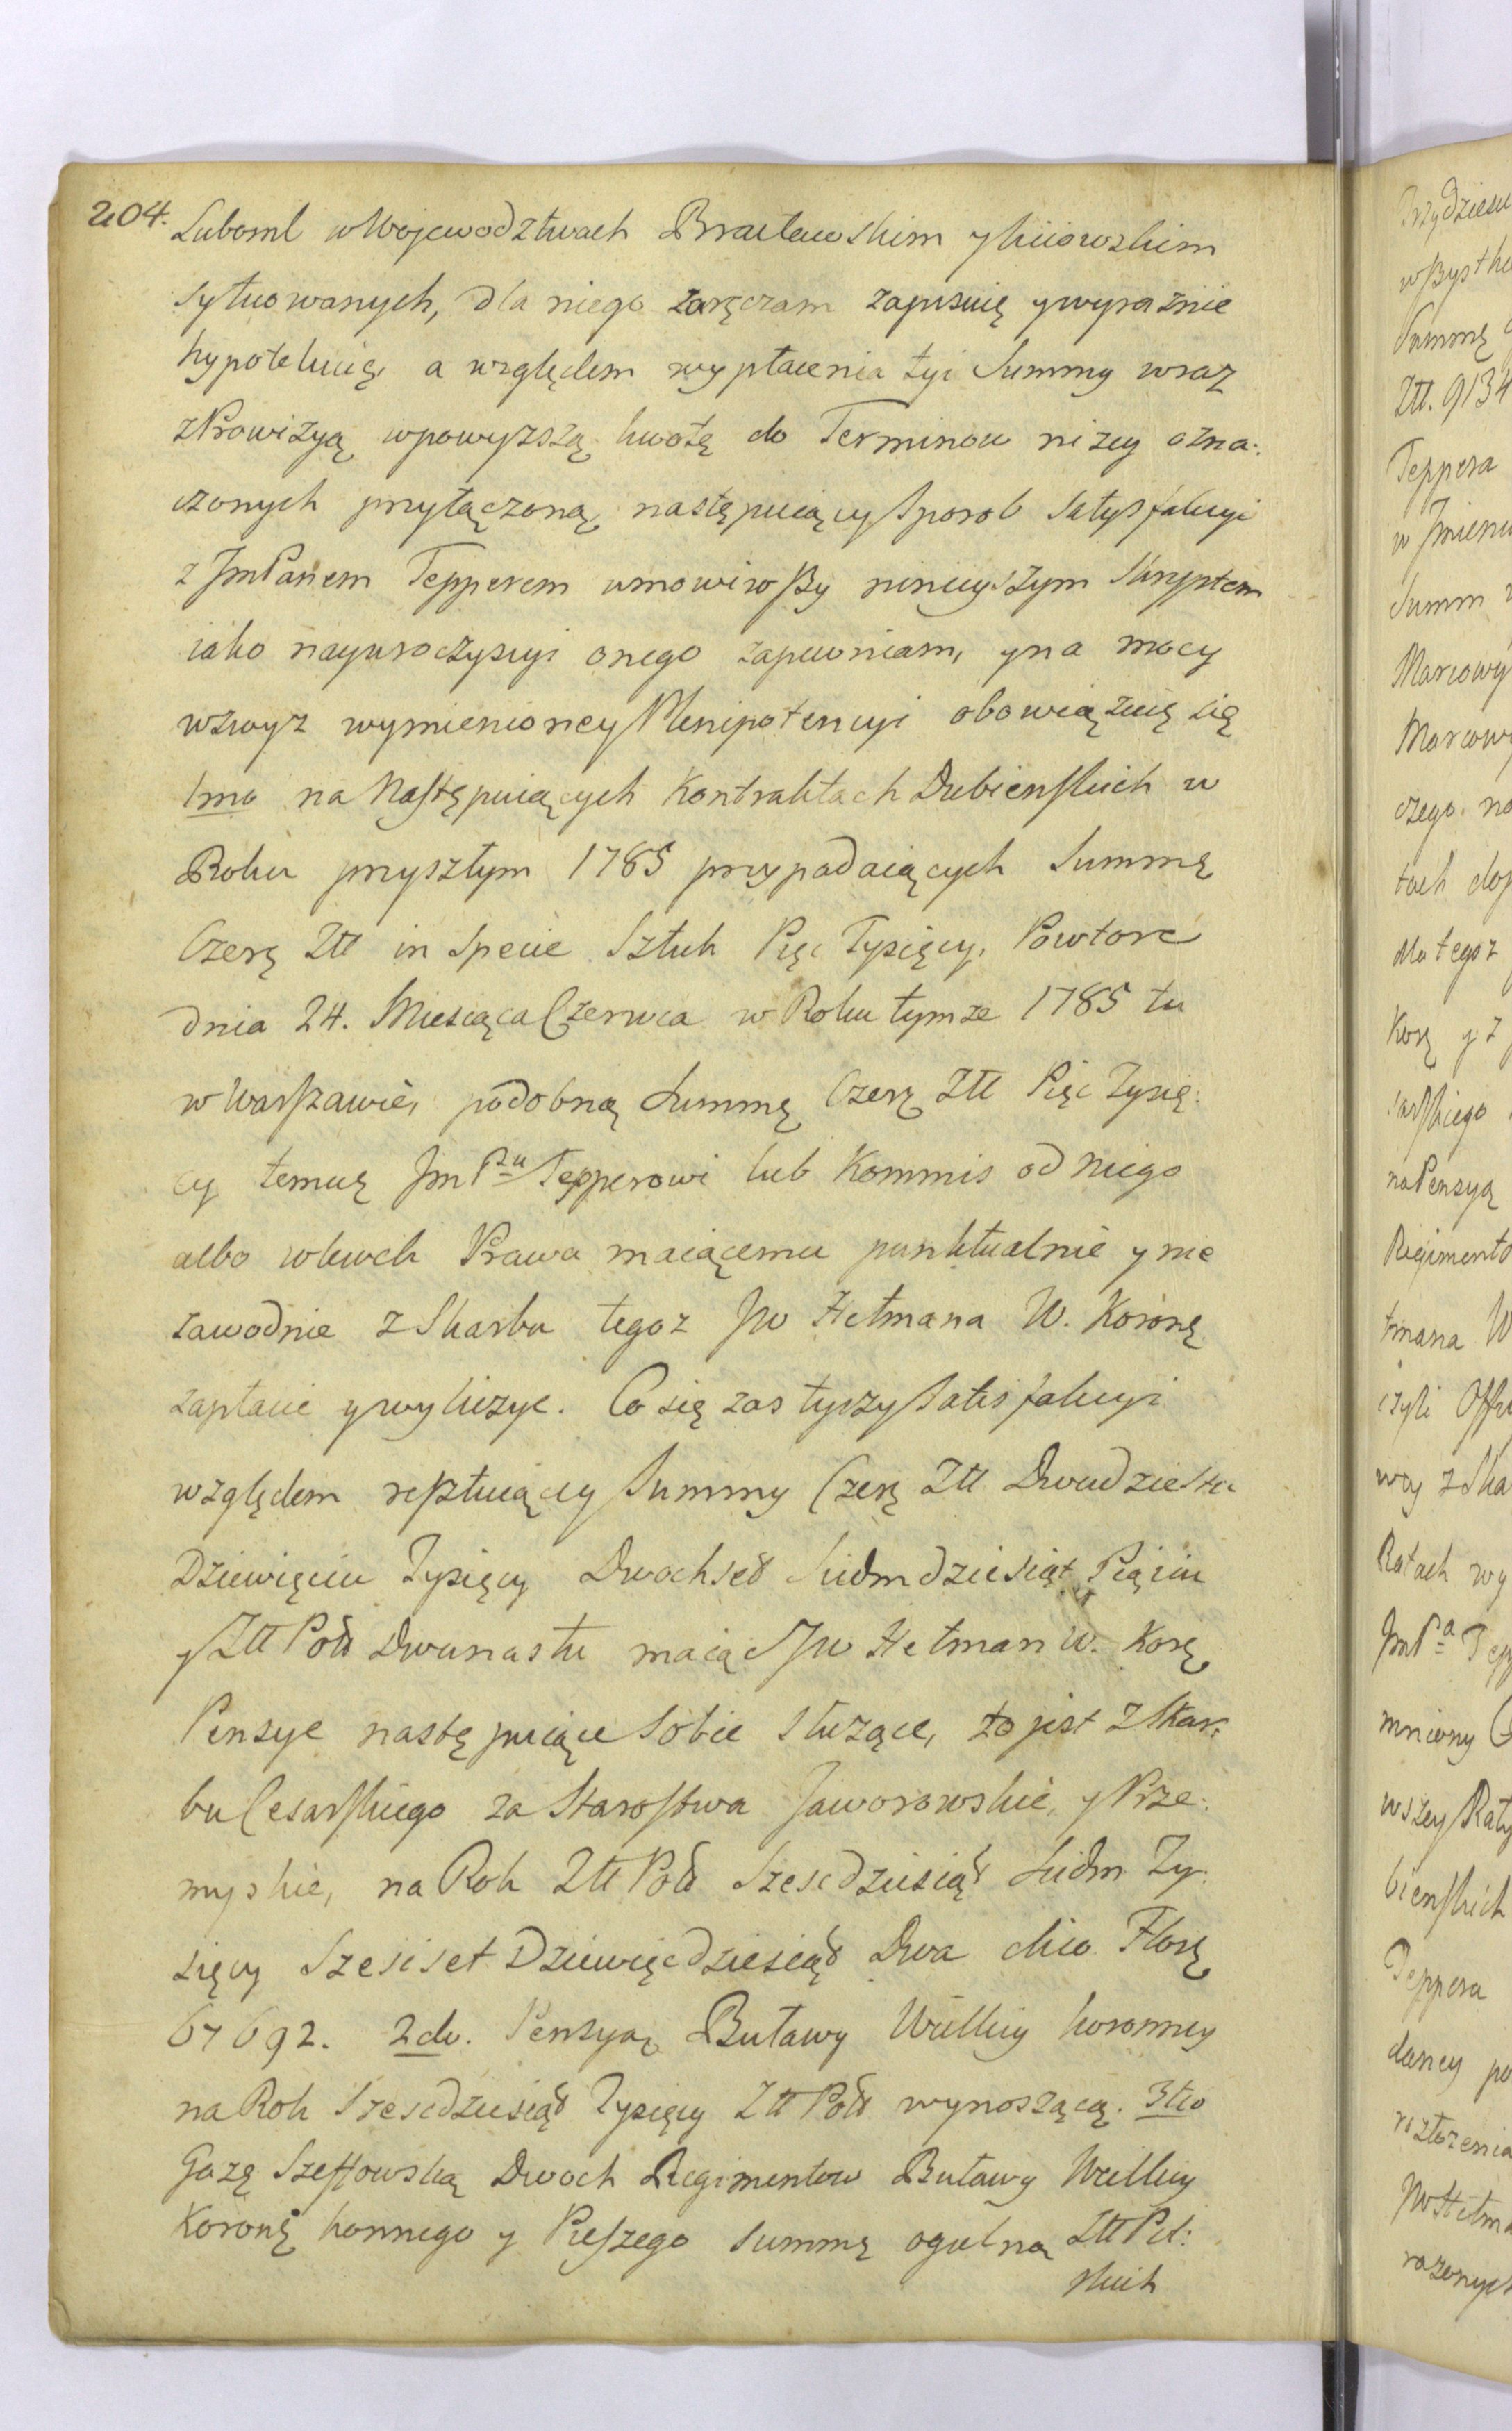 204.
Luboml w Wojewodztwach Bracławskim y kiiowskim
sytuowanych, dla niego zaręczam zapisuię y wyraznie
hypotekuię, a względem wypłacenia tyi Summy wraz
z Prowizyą w powyzszą kwotę do Terminow nizey ozna:
czonych przyłączoną, następuiący Sposob Satysfakcyi
z JmPanem Tepperem umowiwszy ninieyszym Skryptem
iako nayuroczysciyi onego zapewniam, y na mocy
wzwyz wymienioney Plenipotencyi obowiązuię się
1mo na Następuiących Kontraktach Dubienskich w
Roku przyszłym 1785 przypadaiących Summę
Czerą Ztt in Specie Sztuk Pięc Tysięcy, Powtore
dnia 24. Miesiąca Czerwca w Roku tymze 1785 tu
w Warszawie, podobną Summę Czerą Ztt Pięc Tysię:
cy temuż JmPnu Tepperowi lub Kommis od niego
albo wlewek Prawa maiącemu punktualnie y nie
zawodnie z Skarbu tegoz JW Hetmana W. Koroną
zapłacic y wyliczyc. Co się zas tyczy Satisfakcyi
względem resztuiącey Summy Czerą Ztt Dwudziestu
Dziewięciu Tysięcy Dwochset Siedmdziesiąt Pięciu
y Ztt Pols Dwunastu maiąc JW Hetman W. Korą
Pensye następuiące Sobie służące, to jest z Skar:
bu Cesarskiego za Starostwa Jaworowskie, y Prze:
myskie, na Rok Ztt Pols Szescdziesiąt Siedm Ty:
sięcy Szesciset Dziewięcdziesiąt Dwa dico Florą
67692. 2do. Pensyą Buławy Wielkiey koronney
na Rok Szescdziesiąt Tysięcy Ztt Pols wynoszącą. 3tio
Gazę Szeffowską Dwoch Regimentow Buławy Wielkiey
Koroną konnego y Pieszego Summę ogulną Ztt Pol:
skich